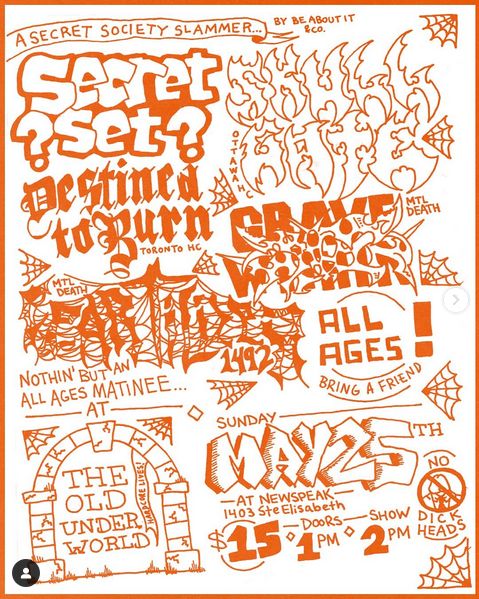 A SECRET SOCIETY SLAMMER...
BY BE ABOUT IT
& CO.
SECRET
?SET?
OTTAWA HC
Destined
to Burn
TORONTO HC
GRAVE
MTL
DEATH
MTL
DEATH
1492
ALL
AGES!
BRING A FRIEND
NOTHIN' BUT AN
ALL AGES MATINEE...
AT
THE
OLD
UNDER
WORLD
HARDCORE LIVES!
SUNDAY
MAY 25TH
AT NEWSPEAK
1403 Ste Elisabeth
$15
DOORS
1PM
SHOW
2PM
NO
DICK
HEADS